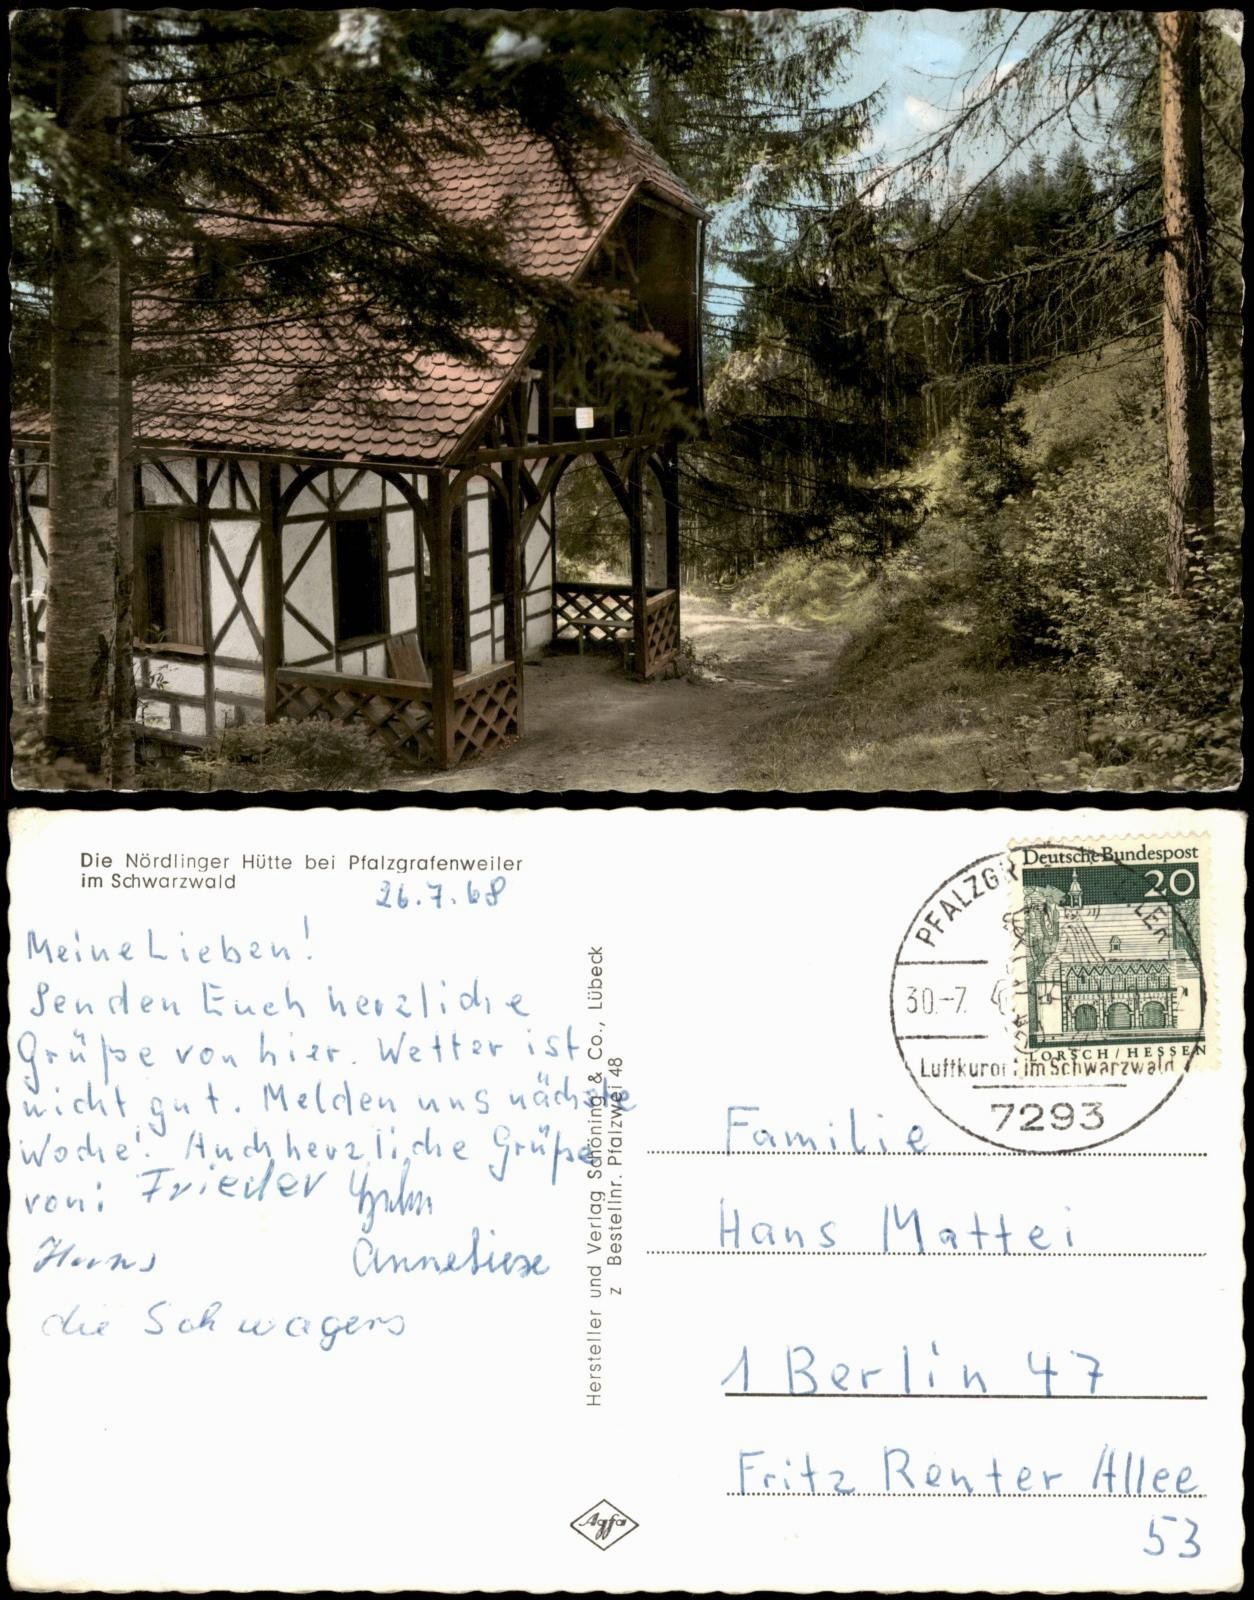 Die Nördlinger Hütte bei Pfalzgrafenweiler
im Schwarzwald
26.7.68
Meine Lieben!
Senden Euch herzliche
Grüße von hier. Wetter ist
nicht gut. Melden uns nächste
Woche! Auch herzliche Grüße
von: Frieder
Hans Anneliese
die Schwagers
Hersteller und Verlag Schöning & Co., Lübeck
z Bestellnr. Pfalzwei 48
Agfa
Deutsche Bundespost
20
LORSCH/HESSEN
30.-7.
Luftkurort im Schwarzwald
7293
Familie
Hans Mattei
1 Berlin 47
Fritz Reuter Allee
53